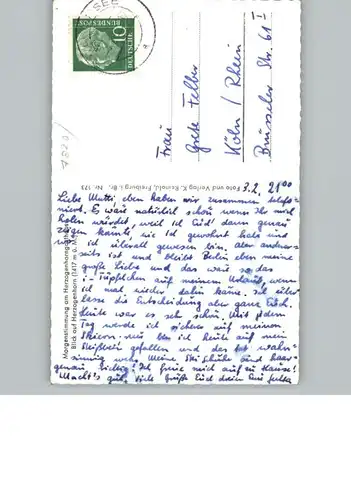 SEE
DEUTSCHE
BUNDESPOST
10
Frau
Grete Felber
Köln / Rhein
Brüsseler Str. 61
I-I
7820/
Foto und Verlag K. Reinold, Freiburg i. Br. Nr. 173
Morgenstimmung am Herzogenhorngebiet
Blick auf Herzogenhorn (1417 m ü. M.)
3.2. 21⁰⁰
Liebe Mutti eben haben wir zusammen telefo-
niert. Es wäre natürlich schön wenn Ihr mich
holen würdet weil ich Euch dann genau
zeigen könnte, wie ich gewohnt habe und
wo ich überall gewesen bin, aber anderer-
seits ist und bleibt Berlin eben meine
große Liebe und das wäre so das
i-Tüpfelchen auf meinem Urlaub, wenn
ich mal wieder dahin käme. Ich über-
lasse die Entscheidung aber ganz Euch.
Heute war es sehr schön. Mit jedem
Tag werde ich sicherer auf meinen
Skiern. nur bin ich heute auf mein
gefallen und das tat wahn-
sinnig weh. Meine Skischuhe sind haar-
genau richtig! Ich freue mich auf zu Hause!
Macht's gut, viele Grüße Euch Eure Jutta